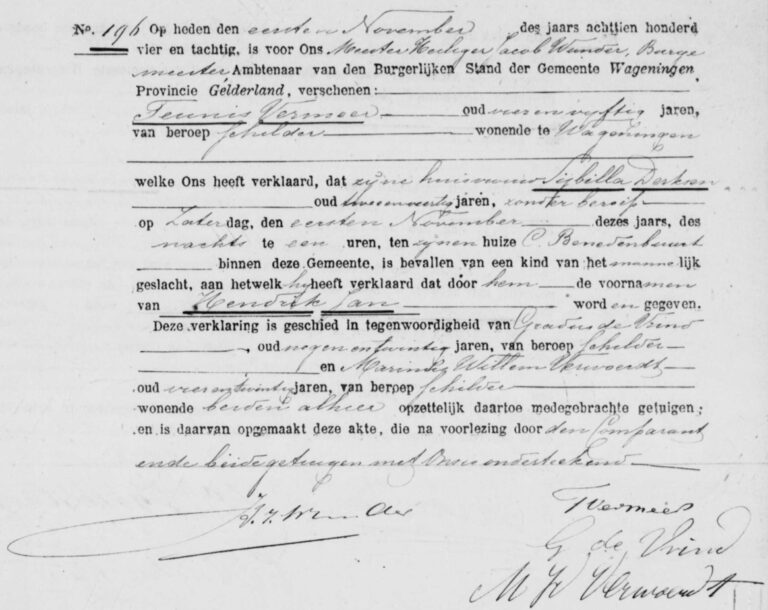 No. 196 Op heden den eersten November des jaars achttien honderd
vier en tachtig, is voor Ons Meester Heiliger Jacob Wunder, Burge
meester Ambtenaar van den Burgerlijken Stand der Gemeente Wageningen,
Provincie Gelderland, verschenen:
Teunis Vermeer oud vier en vijftig jaren,
van beroep schilder wonende te Wageningen
welke Ons heeft verklaard, dat zijne huisvrouw Sijbilla Derksen
oud twee en veertig jaren, zonder beroep
op Zaterdag, den eersten November dezes jaars, des
nachts te een uren, ten zijnen huize C. Benedenbuurt
binnen deze Gemeente, is bevallen van een kind van het mannelijk
geslacht, aan hetwelk hij heeft verklaard dat door hem de voornamen
van Hendrik Jan worden gegeven.
Deze verklaring is geschied in tegenwoordigheid van Gradus de Vrind
, oud negen en twintig jaren, van beroep schilder
en Marinus Willem Verwoerdt
oud vier en twintig jaren, van beroep schilder
wonende beiden alhier opzettelijk daartoe medegebrachte getuigen;
en is daarvan opgemaakt deze akte, die na voorlezing door den Comparant
en de beide getuigen met Ons is onderteekend
H. J. Wunder
T Vermeer
G de Vrind
M W Verwoerdt